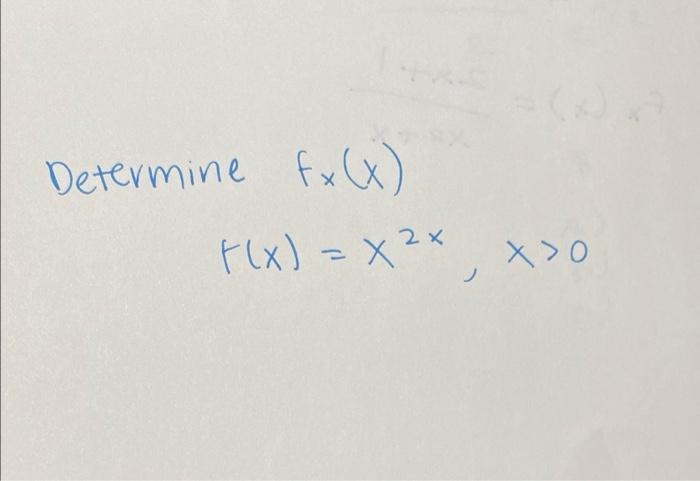 Determine fx(x)
f(x) = x^2x, x>0